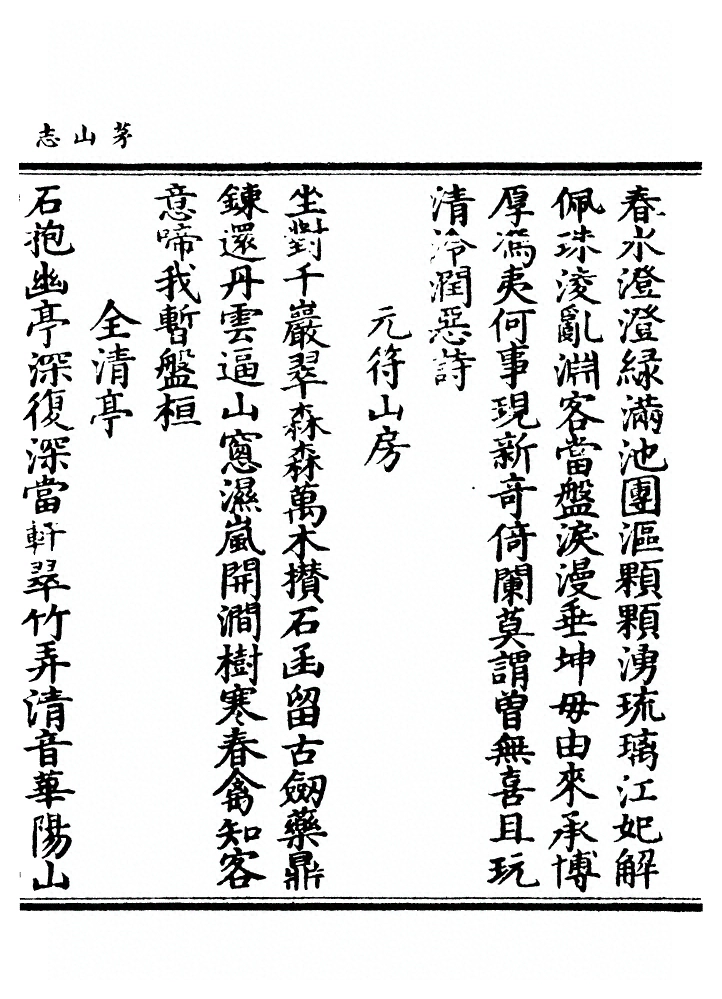 茅山志
春水澄澄緑滿池團漚顆顆湧琉璃江妃解
佩珠淩亂淵客當盤淚漫垂坤毋由來承博
厚馮夷何事現新竒倚闌莫謂曽無喜且玩
清泠潤惡詩
元符山房
坐對千巖翠森森萬木攅石函留古劒藥鼎
鍊還丹雲逼山窻濕嵐開澗樹寒春禽知客
意啼我暫盤桓
全清亭
石抱幽亭深復深當軒翠竹弄清音華陽山